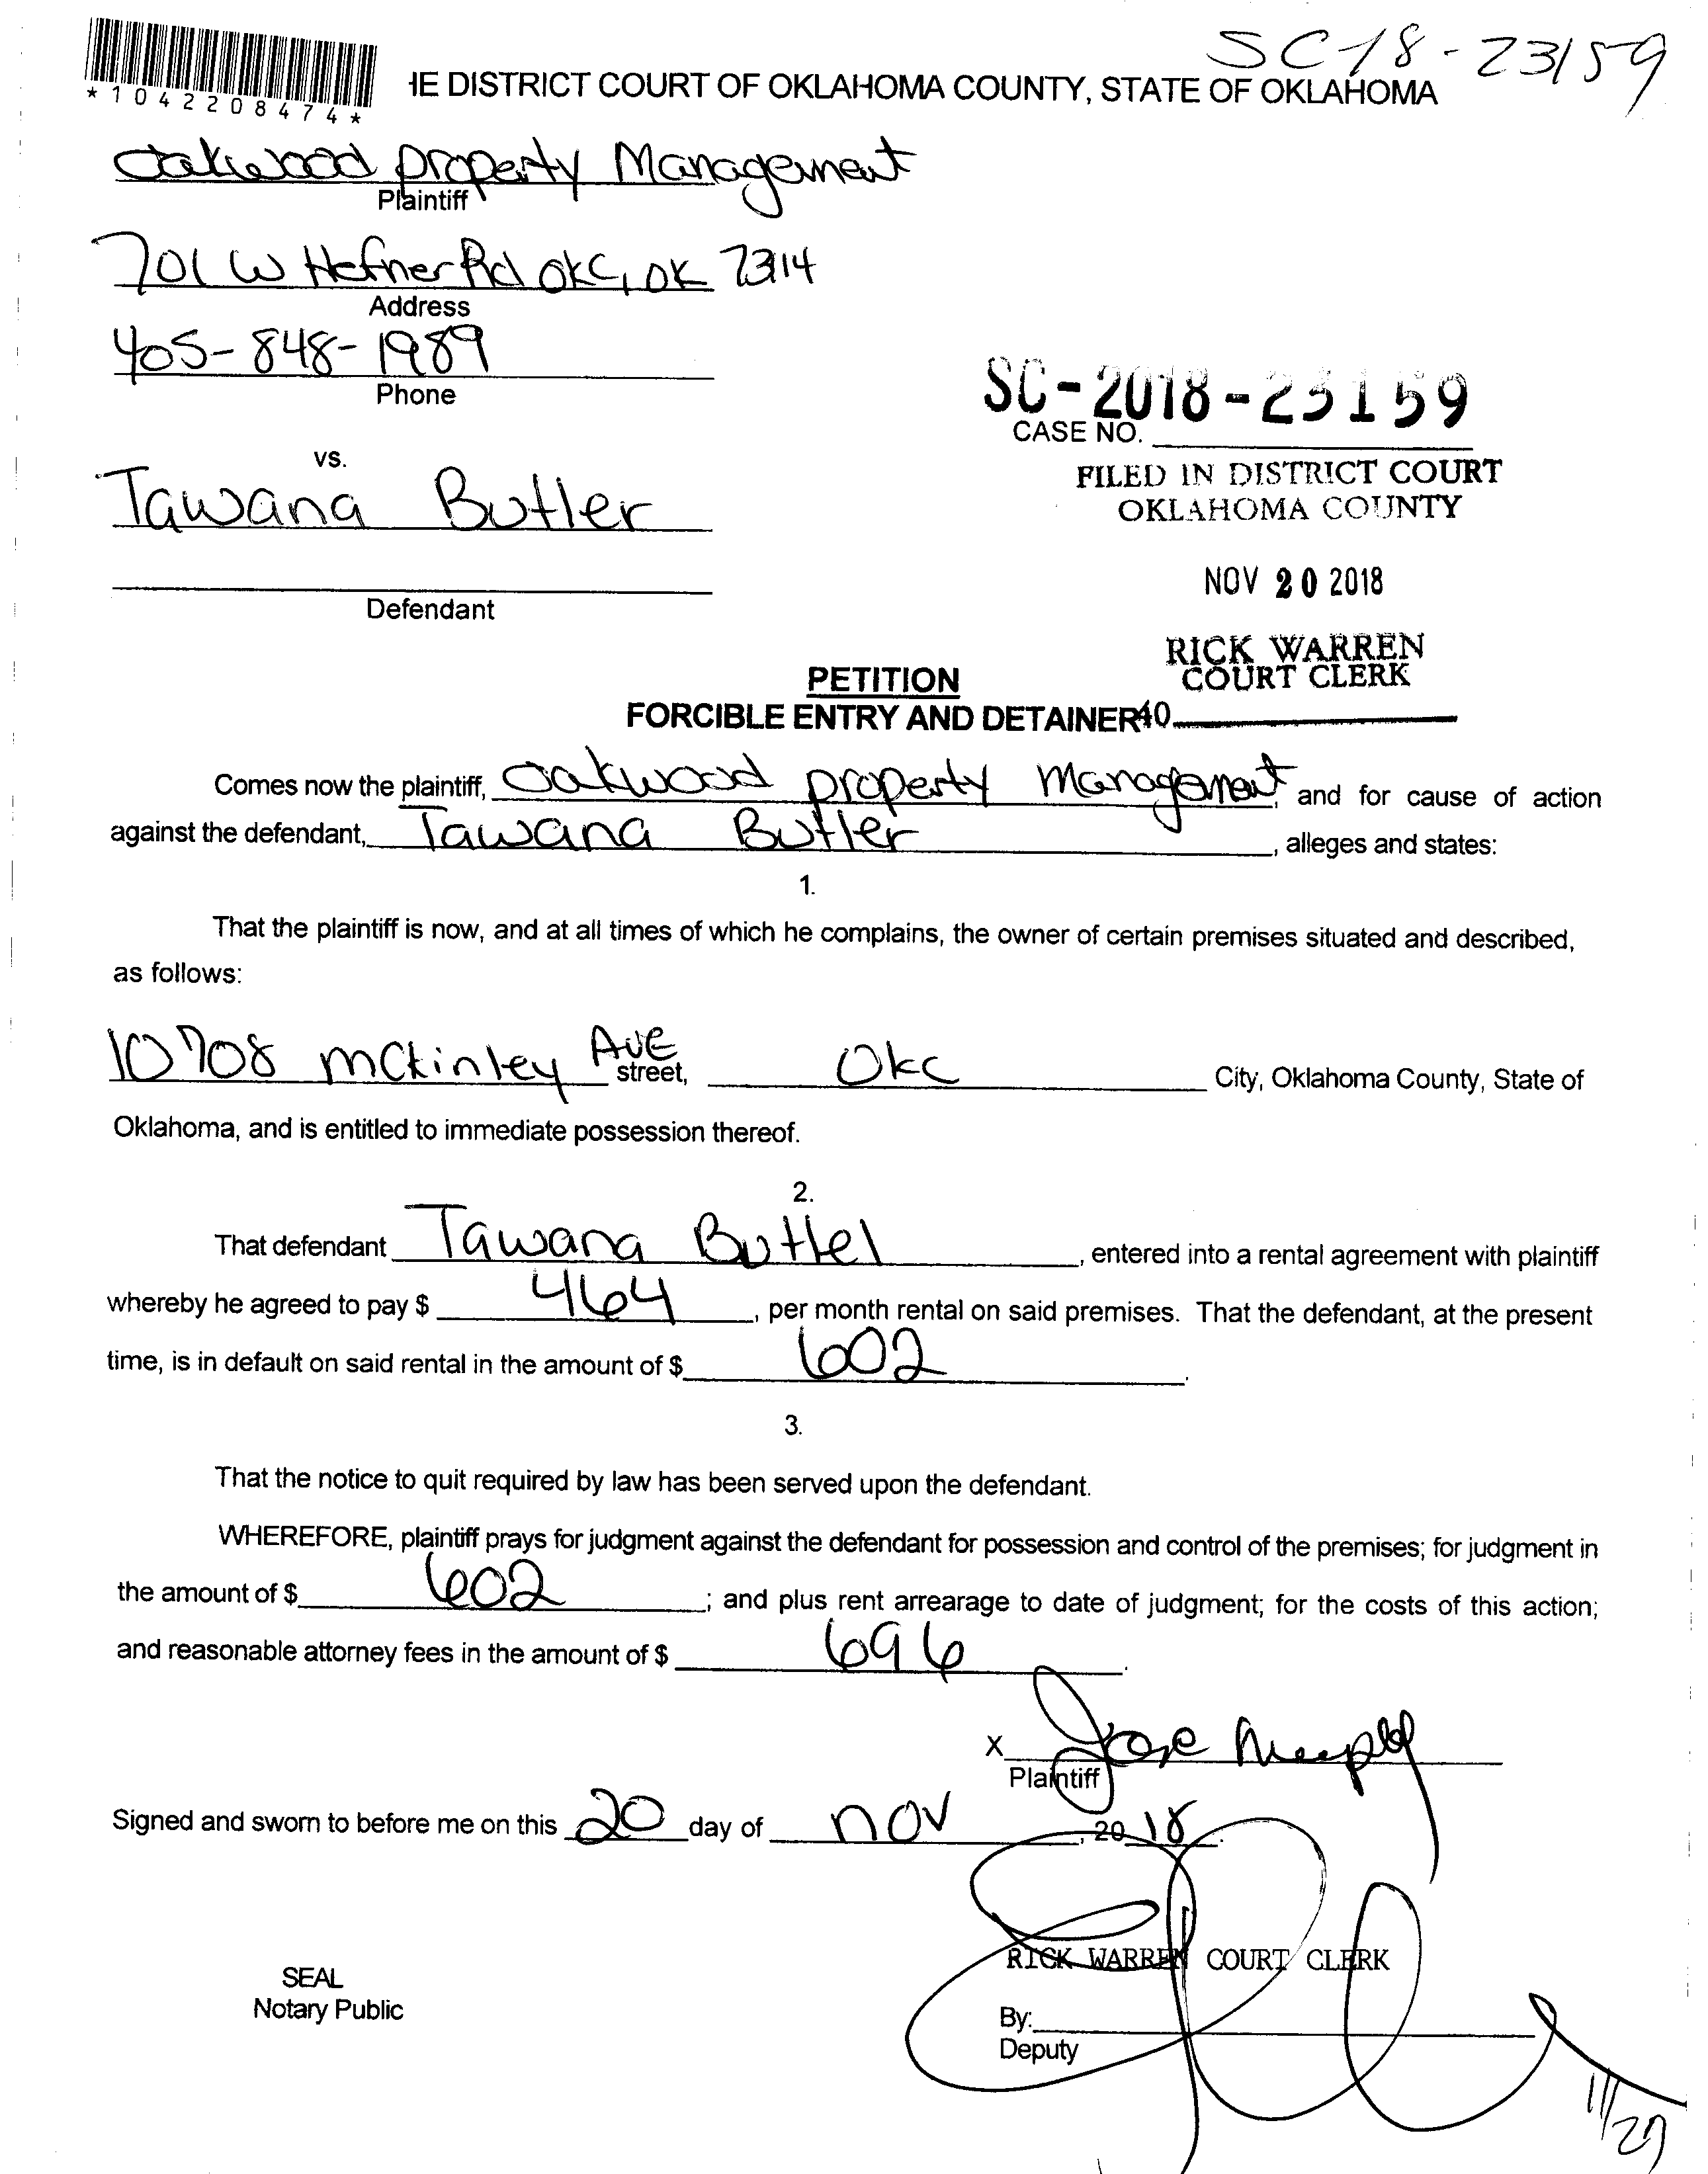 SC-18-23159
*1042208474*
HE DISTRICT COURT OF OKLAHOMA COUNTY, STATE OF OKLAHOMA
Oakwood property Management
Plaintiff
701 W Hefner Rd OKC, OK 73114
Address
405-848-1989
Phone
SC-2018-23159
CASE NO.
vs.
Tawana Butler
FILED IN DISTRICT COURT
OKLAHOMA COUNTY
NOV 20 2018
Defendant
RICK WARREN
COURT CLERK
PETITION
FORCIBLE ENTRY AND DETAINER
40
Comes now the plaintiff, Oakwood property Management, and for cause of action
against the defendant, Tawana Butler, alleges and states:
1.
That the plaintiff is now, and at all times of which he complains, the owner of certain premises situated and described,
as follows:
10708 mckinley Ave street, Okc City, Oklahoma County, State of
Oklahoma, and is entitled to immediate possession thereof.
2.
That defendant Tawana Buttel, entered into a rental agreement with plaintiff
whereby he agreed to pay $ 464, per month rental on said premises. That the defendant, at the present
time, is in default on said rental in the amount of $ 602.
3.
That the notice to quit required by law has been served upon the defendant.
WHEREFORE, plaintiff prays for judgment against the defendant for possession and control of the premises; for judgment in
the amount of $ 602; and plus rent arrearage to date of judgment; for the costs of this action;
and reasonable attorney fees in the amount of $ 696.
X
Plaintiff
Signed and sworn to before me on this 20 day of nov, 20 18.
RICK WARREN COURT CLERK
SEAL
Notary Public
By:
Deputy
11/29